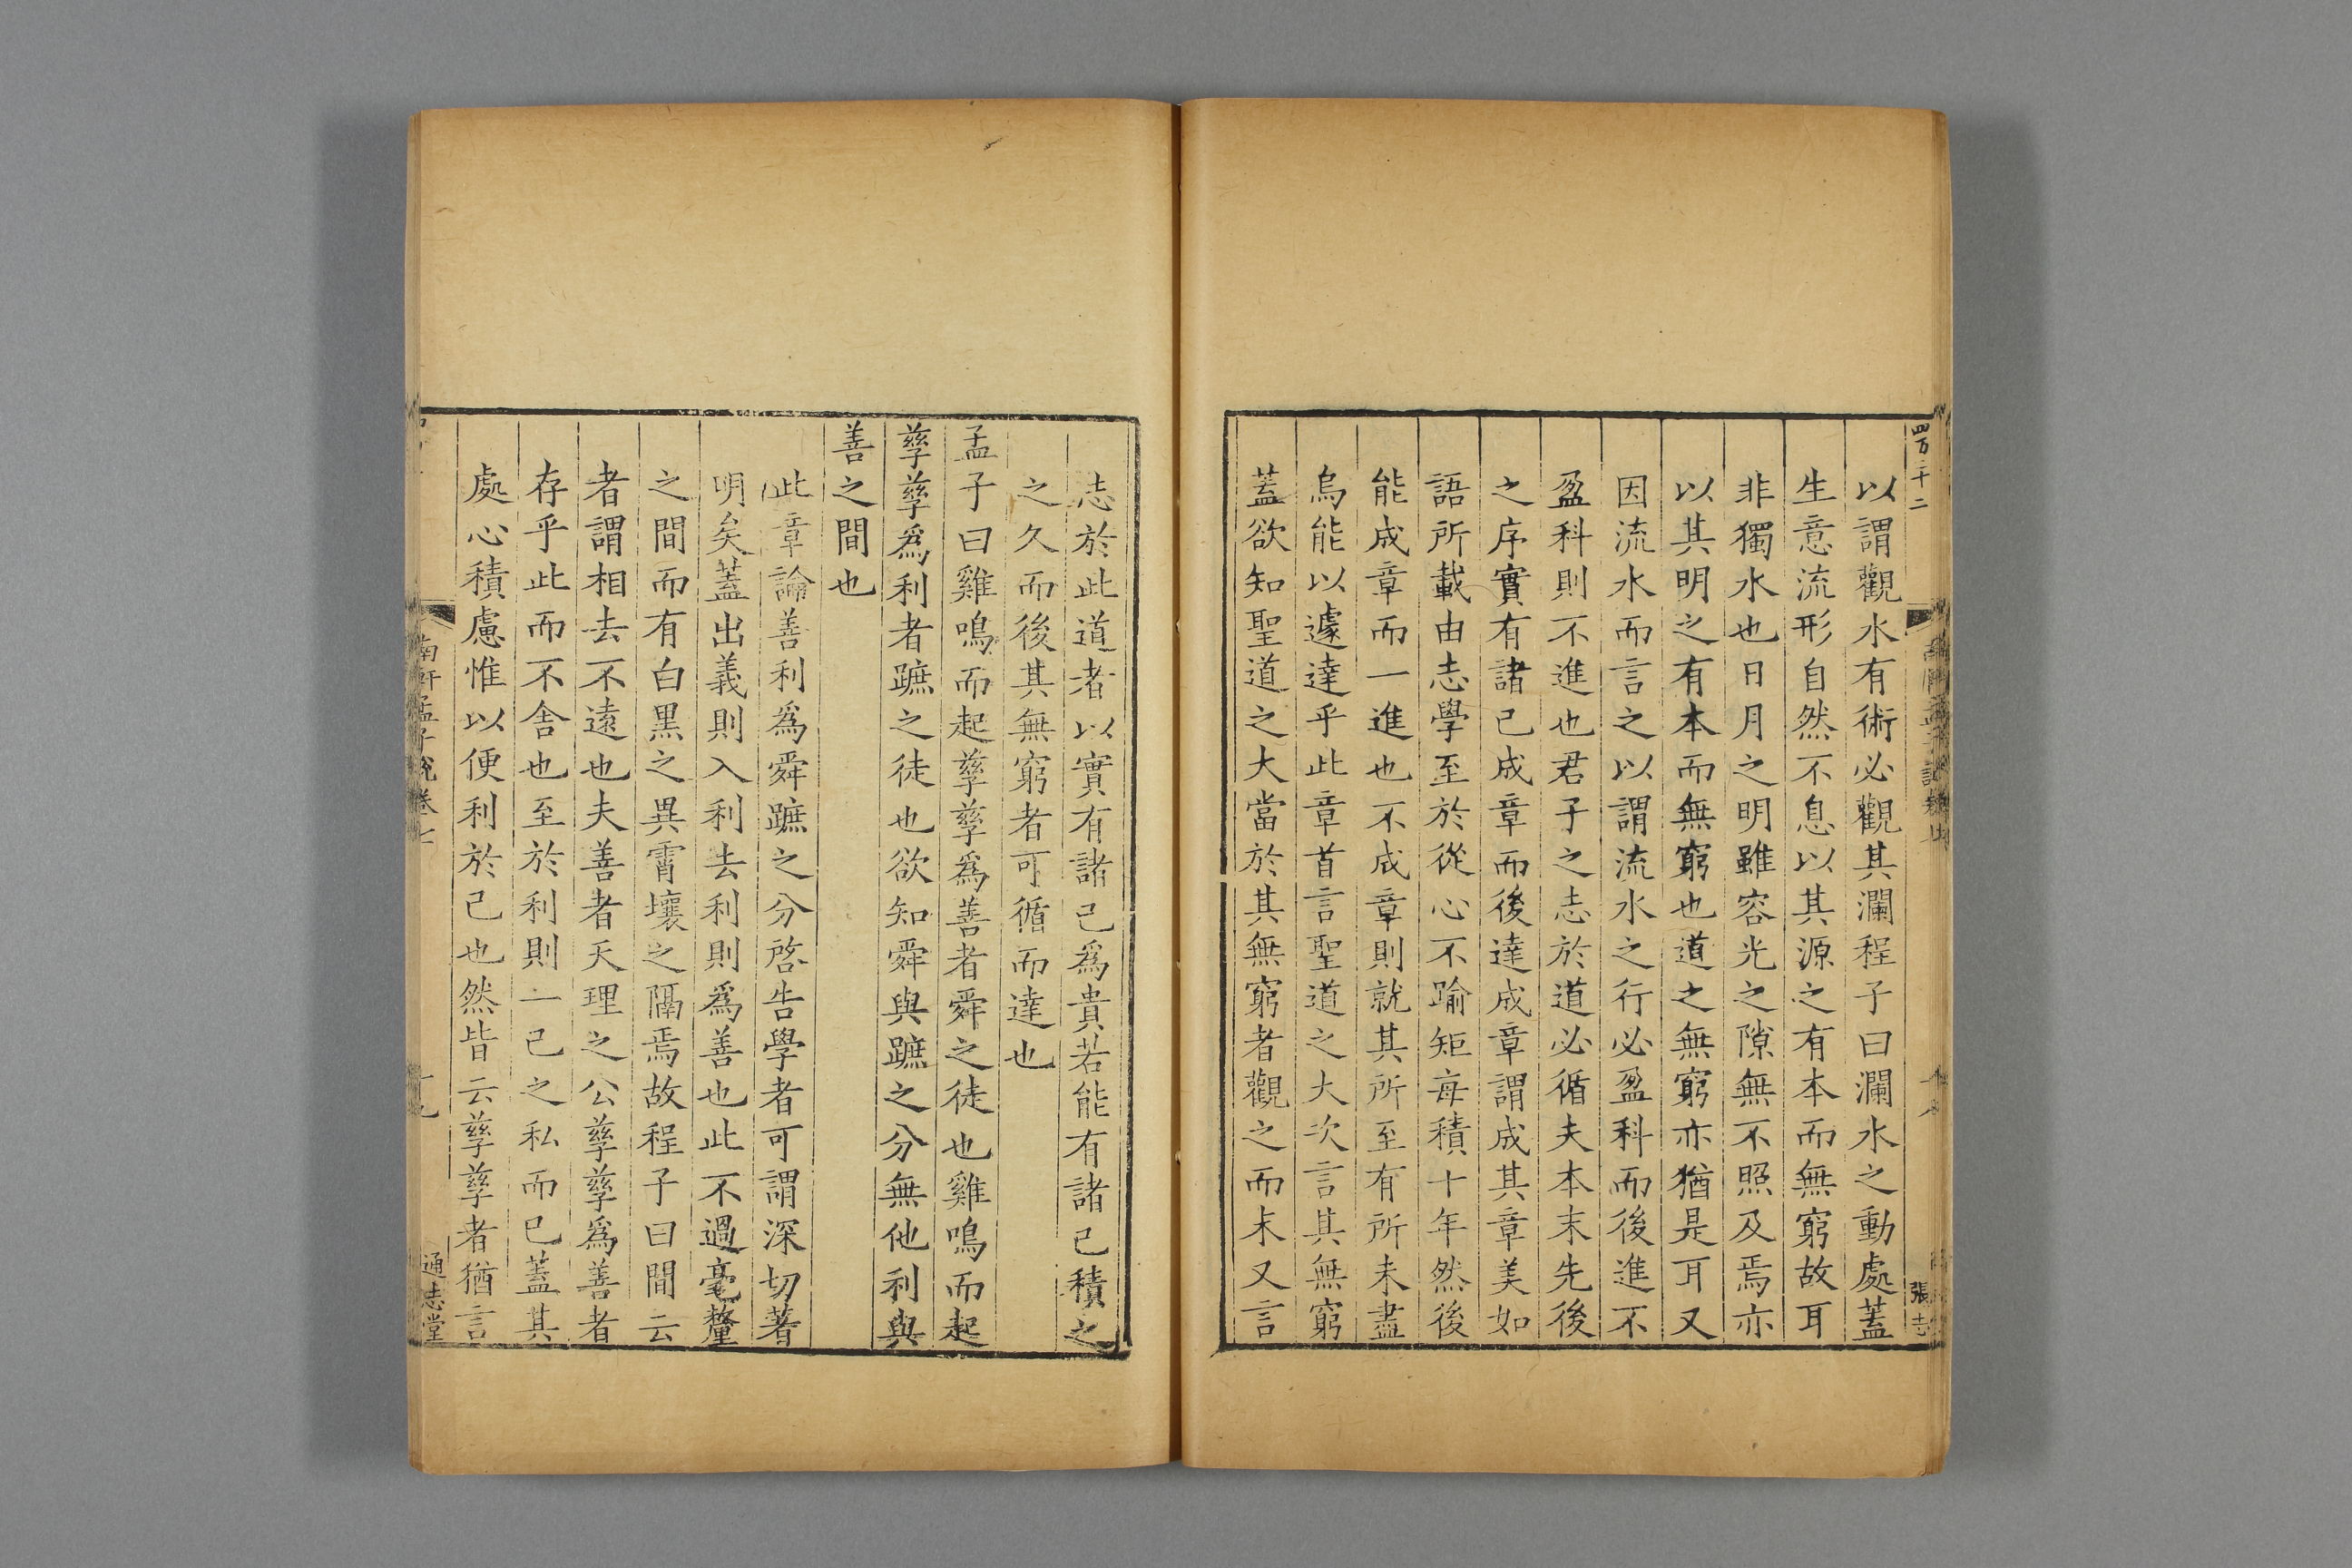 以謂觀水有術必觀其瀾程子曰瀾水之動處蓋
生意流形自然不息以其源之有本而無窮故耳
非獨水也日月之明雖容光之隙無不照及焉亦
以其明之有本而無窮也道之無窮亦猶是耳又
因流水而言之以謂流水之行必盈科而後進不
盈科則不進也君子之志於道必循夫本末先後
之序實有諸己成章而後達成章謂成其章美如
語所載由志學至於從心不踰矩每積十年然後
能成章而一進也不成章則就其所至有所未盡
烏能以遽達乎此章首言聖道之大次言其無窮
蓋欲知聖道之大當於其無窮者觀之而末又言
志於此道者以實有諸己為貴若能有諸己積之
之久而後其無窮者可循而達也
孟子曰雞鳴而起孳孳爲善者舜之徒也雞鳴而起
孳孳爲利者蹠之徒也欲知舜與蹠之分無他利與
善之間也
此章論善利爲舜蹠之分啓告學者可謂深切著
明矣蓋出義則入利去利則爲善也此不過毫釐
之間而有白黑之異霄壤之隔焉故程子曰間云
者謂相去不遠也夫善者天理之公孳孳爲善者
存乎此而不舍也至於利則一己之私而已蓋其
處心積慮惟以便利於己也然皆云孳孳者猶言
南軒孟子說卷七
十九
通志堂